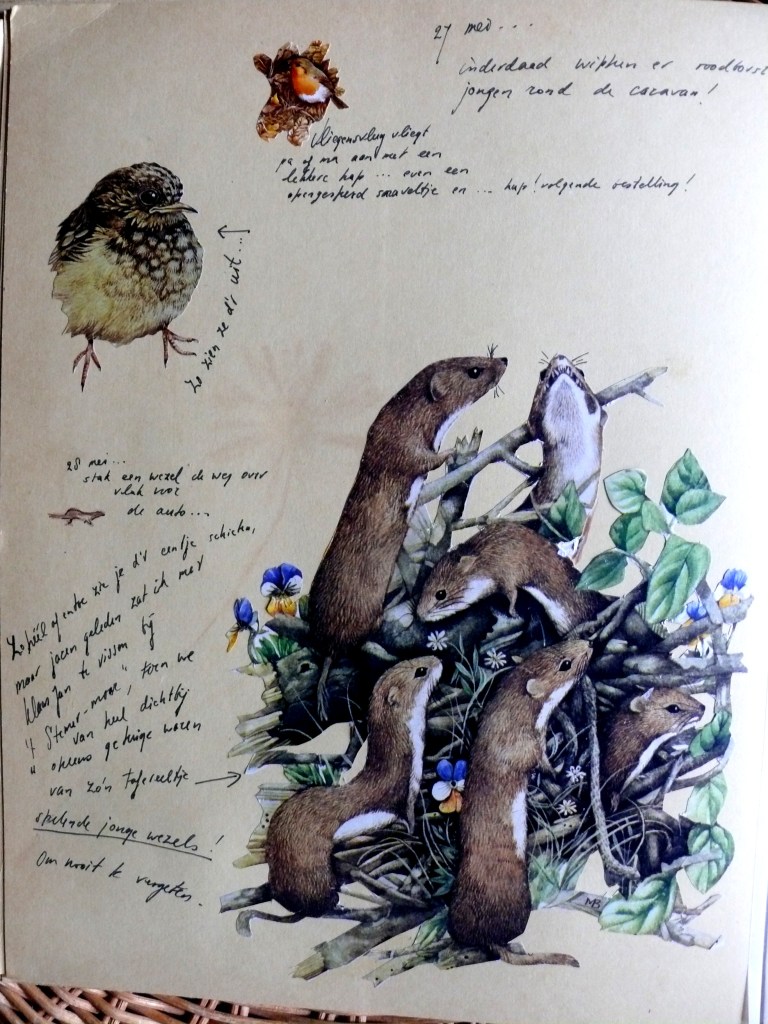 27 mei...
inderdaad wippen er roodborst
jongen rond de caravan!
Vliegensvlug vliegt
pa of ma aan met een
lekkere hap ... even een
opengesperd snaveltje en ... hap! volgende bestelling!
Zo zien ze d'r uit...
28 mei...
stak een wezel de weg over
vlak voor
de auto...
Zo héél af en toe zie je d'r eentje schieten,
maar jaren geleden zat ik met
Klaas Jan te vissen bij
't
toen we
van heel dichtbij
opeens getuige waren
van zo'n tafereeltje
spelende jonge wezels!
Om nooit te vergeten.
MB